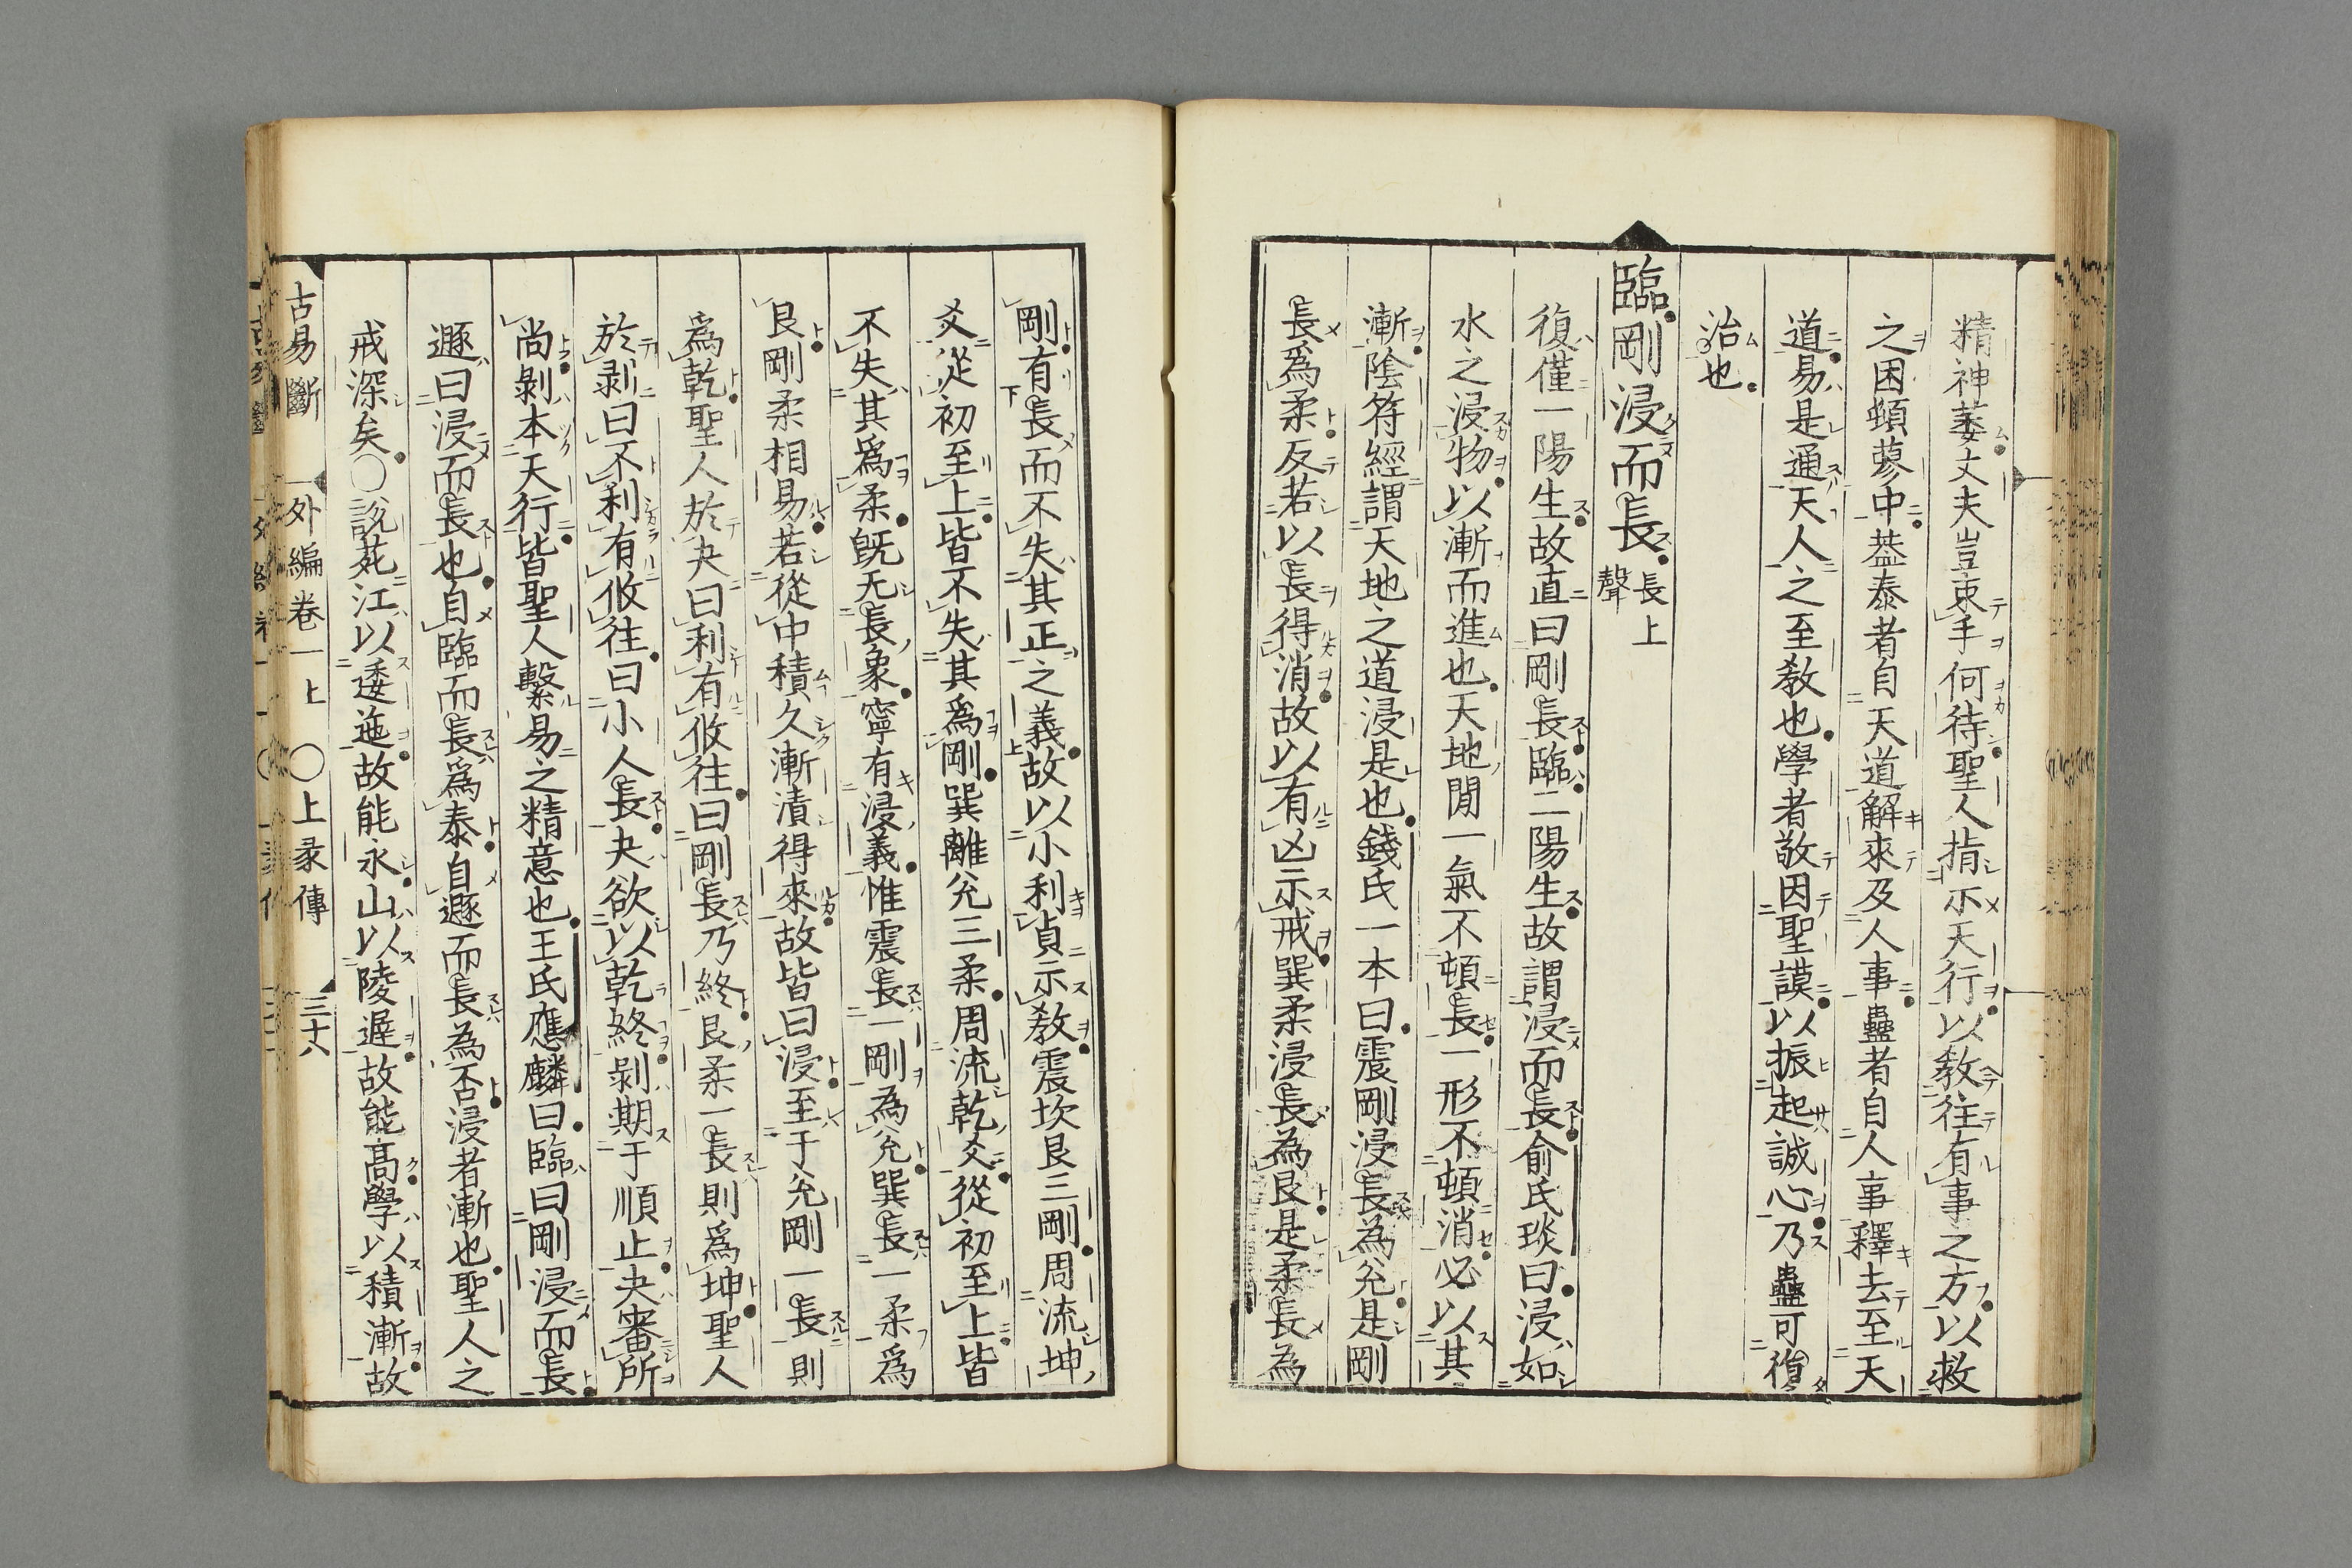 精神萎丈夫豈束手何待聖人指示天行以教往有事之方以救
之困頓蔘中葢泰者自天道解來及人事蠱者自人事釋去至天
道易是通天人之至教也學者敬因聖謨以振起誠心乃蠱可復
治也
臨剛浸而長長上聲
復僅一陽生故直曰剛長臨二陽生故謂浸而長俞氏琰曰浸如
水之浸物以漸而進也天地閒一氣不頓長一形不頓消必以其
漸陰符經謂天地之道浸是也錢氏一本曰震剛浸長為兊是剛
長爲柔反若以長得消故以有凶示戒巽柔浸長為艮是柔長為
剛有長而不失其正之義故以小利貞示教震坎艮三剛周流坤
爻從初至上皆不失其爲剛巽離兊三柔周流乾爻從初至上皆
不失其爲柔既无長象寧有浸義惟震長一剛為兊巽長一柔爲
艮剛柔相易若從中積久漸漬得來故皆曰浸至于兊剛一長則
爲乾聖人於夬曰利有攸往曰剛長乃終艮柔一長則爲坤聖人
於剥曰不利有攸往曰小人長夬欲以乾終剥期于順止夬審所
尚剝本天行皆聖人繫易之精意也王氏應麟曰臨曰剛浸而長
遯曰浸而長也自臨而長爲泰自遯而長為否浸者漸也聖人之
戒深矣○說苑江以逶迤故能永山以陵遲故能髙學以積漸故
古易斷 外編卷一上 ○上彖傳 三十八